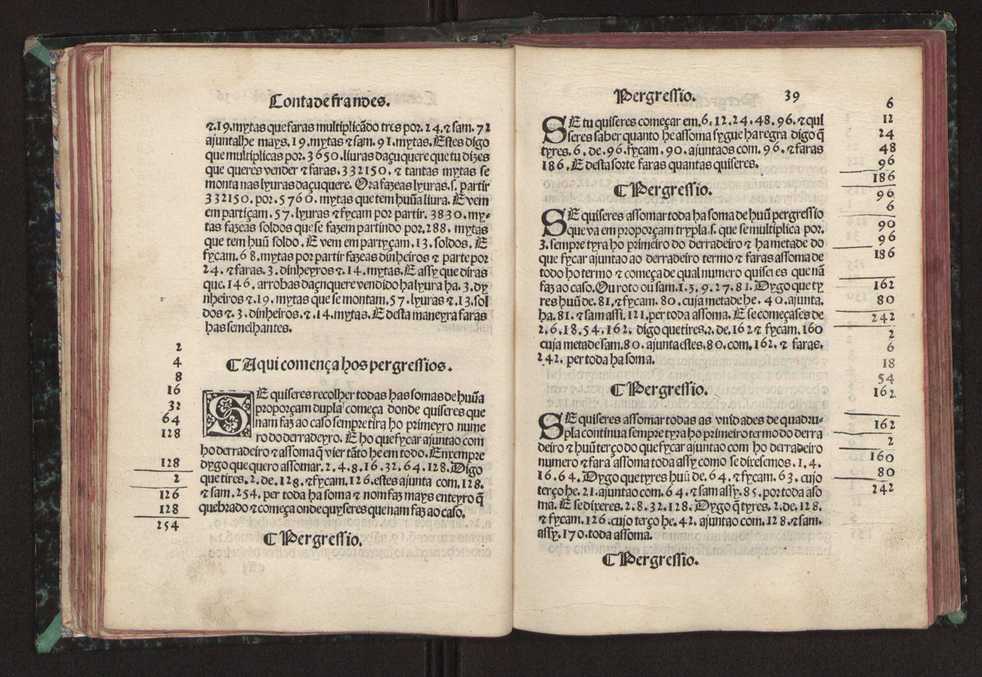 Conta de frandes.
⁊.19.mytas que faras multiplicãdo tres por.24.⁊ sam.72
ajuntalhe mays.19.mytas ⁊ sam.91.mytas. Estes digo
que multiplicas por.3650.liuras daçuquere que tu dizes
que queres vender ⁊ faras.332150.⁊ tantas mytas se
monta nas lyuras daçuquere. Ora fazeas lyuras.s. partir
332150.por.5760.mytas que tem huũa liura. E vem
em partiçam.57.lyuras ⁊ fycam por partir.3830.my-
tas fazeas soldos que se fazem partindo por.288.mytas
que tem huũ soldo. E vem em partyçam.13.soldos. E
fycam.68.mytas por partir fazeas dinheiros ⁊ parte por
24.⁊ faras.3.dinheyros ⁊.14.mytas. E assy que diras
que.146.arrobas daçuquere vendido ha lyura ha.3.dy
nheiros ⁊.19.mytas que se montam.57.lyuras ⁊.13.sol
dos ⁊.3.dinheiros.⁊.14.mytas. E desta maneyra faras
has semelhantes.
¶ Aqui começa hos pergressios.
SE quiseres recolher todas has somas de huũa
proporçam dupla começa donde quiseres que
nam faz ao caso sempre tira ho primeyro nume
ro do derradeyro. E ho que fycar ajunta o com
ho derradeiro ⁊ a assoma q̃ vier tãto he em todo. Enxempre
dygo que quero assomar.2.4.8.16.32.64.128. Digo
que tires.2.de.128.⁊ fycam.126.estes ajunta com.128.
⁊ sam.254. per toda ha soma ⁊ nom faz mays enteyro q̃
quebrado ⁊ começa onde quyseres que nam faz ao caso.
¶ Pergressio.
2
4
8
16
32
64
128
128
2
126
128
254
Pergressio. 39
SE tu quiseres começar em.6.12.24.48.96.⁊ qui
seres saber quanto he assoma sygue ha regra digo q̃
tyres.6.de.96.fycam.90.ajunta os com.96.⁊ faras
186. E desta sorte faras quantas quiseres.
¶ Pergressio.
SE quiseres assomar toda ha soma de huũ pergressio
que va em proporçam trypla.s. que se multiplica por.
3.sempre tyra ho primeiro do derradeiro ⁊ ha metade do
que fycar ajunta o ao derradeiro termo ⁊ faras assoma de
todo ho termo ⁊ começa de qual numero quiseres que nã
faz ao caso. Ou roto ou sam.1.3.9.27.81. Dygo que ty
res huũ de.81.⁊ fycam.80.cuja metade he.40.ajunta.
ha.81.⁊ sam assi.121.per toda assoma. E se começases de
2.6.18.54.162.digo que tires.2.de.162 ⁊ fycam.160
cuja metade sam.80.ajunta estes.80.com.162.⁊ faras.
242.per toda ha soma.
¶ Pergressio.
SE quiseres assomar todas as vnidades de quadru-
pla continua sempre tyra ho primeiro termo do derra
deiro ⁊ huũ terço do que fycar ajunta o com ho derradeiro
numero ⁊ fara assoma toda assy como se diresemos.1.4.
16.64. Dygo que tyres huũ de.64.⁊ fycam.63.cujo
terço he.21.ajunta o com.64.⁊ sam assy.85.por toda aso
ma. E se dixeres.2.8.32.128. Dygo q̃ tyres.2.de.128.
⁊ fycam.126.cujo terço he.42.ajunta o com.128.⁊ sam.
assy.170.toda assoma.
¶ Pergressio.
6
12
24
48
96
186
96
6
90
96
186
162
80
242
2
6
18
54
162
162
2
160
80
242